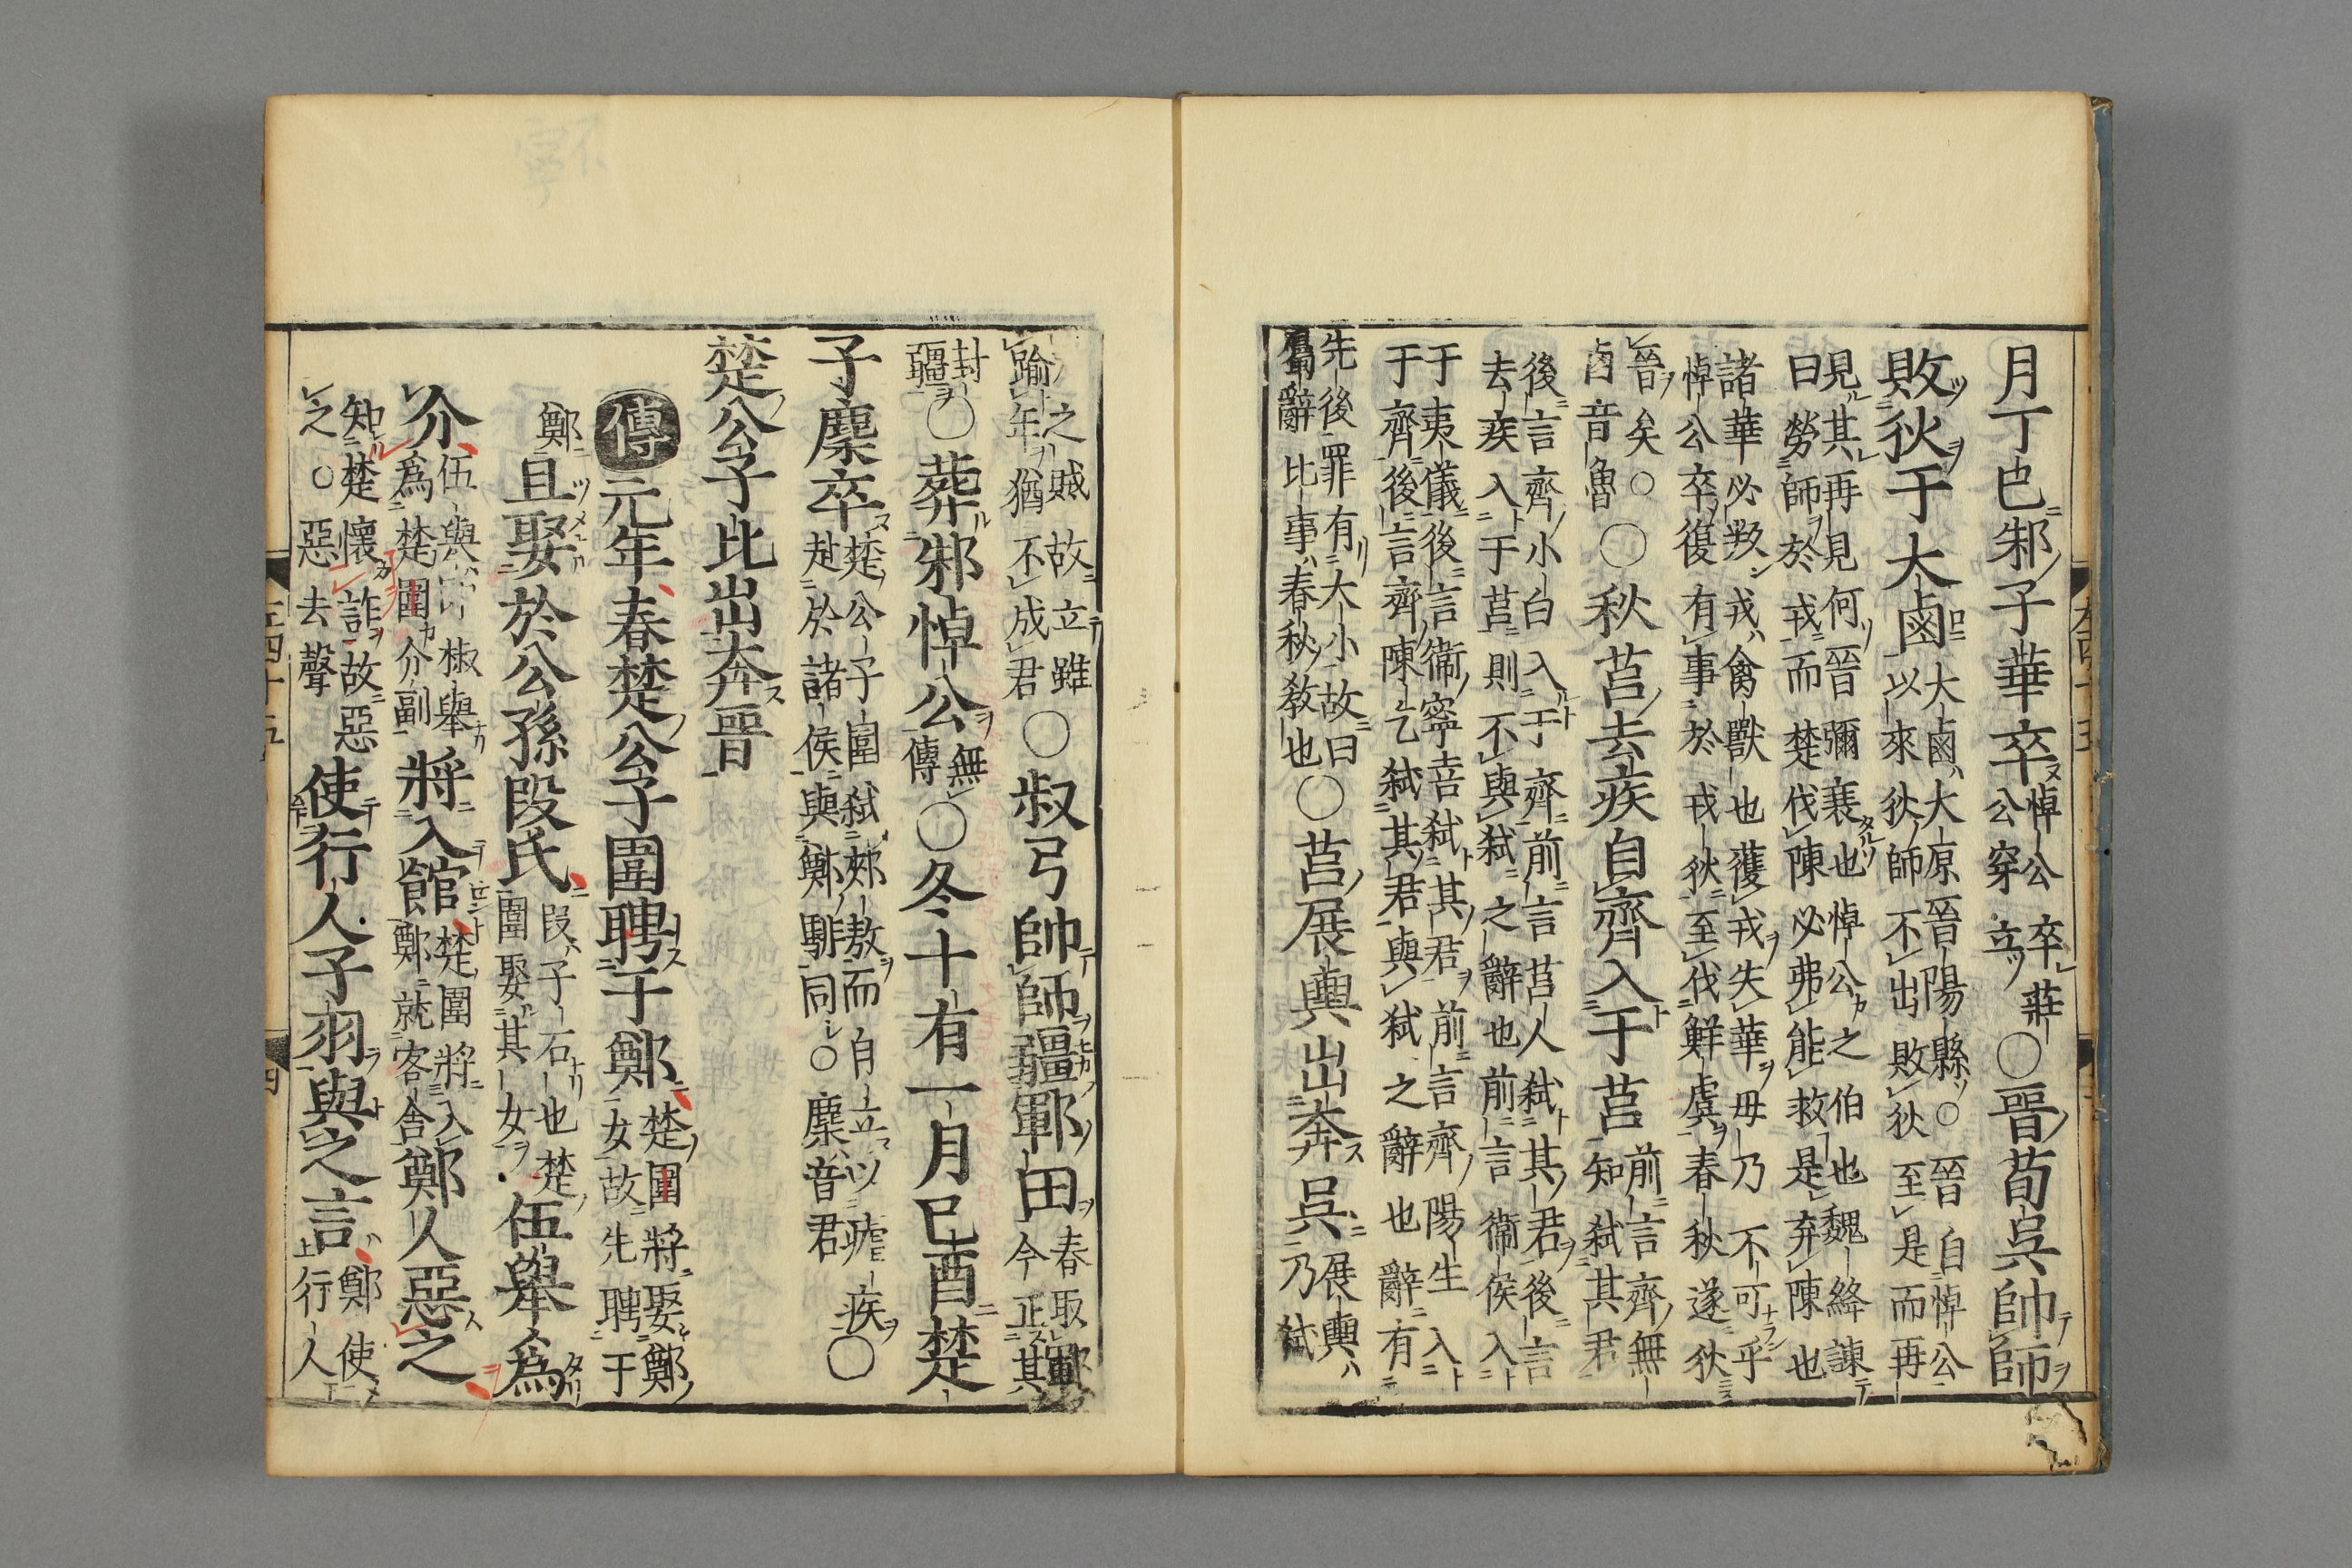 月丁巳邾子華卒悼公卒莊公穿立〇晉荀吳帥師
敗狄于大鹵大鹵大原晉陽縣〇晉自悼公以來狄師不出敗狄至是而再
見其再見何晉彌衰也悼公之伯也魏絳諫
曰勞師於戎而楚伐陳必弗能救是弃陳也
諸華必叛戎禽獸也獲戎失華毋乃不可乎
悼公卒復有事於戎狄至伐鮮虞春秋遂狄
晉矣〇鹵音魯〇秋莒去疾自齊入于莒前言齊無知弑其君
後言齊小白入于齊前言莒人弑其君後言
去疾入于莒則不與弑之辭也前言衞侯入
于夷儀後言衞寧喜弑其君前言齊陽生入
于齊後言齊陳乞弑其君與弑之辭也辭有
先後罪有大小故曰屬辭比事春秋敎也〇莒展輿出奔吳展輿乃弑
之賊故立雖踰年猶不成君〇叔弓帥師疆鄆田春取鄆今正其
封疆〇葬邾悼公無傳〇冬十有一月己酉楚
子麇卒楚公子圍弑郟敖而自立以瘧疾赴於諸侯與鄭騑同〇麇音君〇
楚公子比出奔晉
傳元年春楚公子圍聘于鄭楚圍將娶鄭女故先聘于
鄭且娶於公孫段氏段子石也楚圍娶其女伍舉爲
介伍椒舉爲楚圍介副將入館楚圍將入鄭就客舍鄭人惡之
知楚懷詐故惡之〇惡去聲使行人子羽與之言鄭使行人
左四十五
四